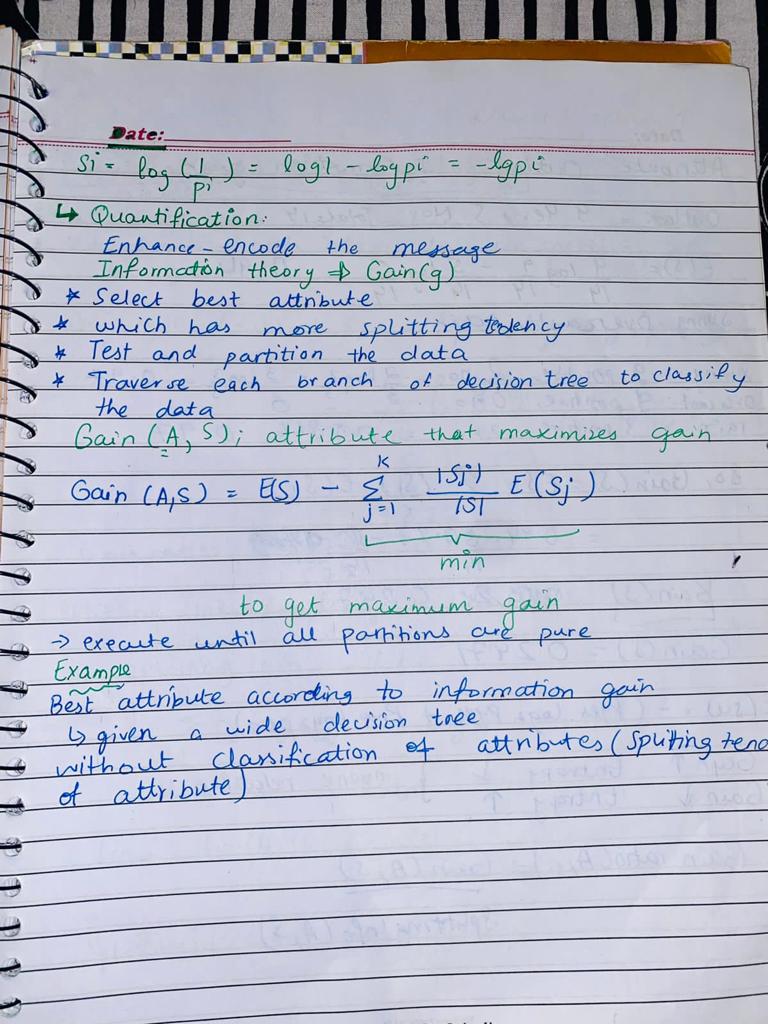 Date:
Si = log (1/pi) = log1 - logpi = -lgpi
↳ Quantification:
Enhance - encode the message
Information theory ⇒ Gain(g)
* Select best attribute
* which has more splitting tedency
* Test and partition the data
* Traverse each branch of decision tree to classify
the data
Gain (A, S); attribute that maximizes gain
Gain (A,S) = E(S) - K Σ j=1 |Sj|/|S| E(Sj)
min
to get maximum gain
→ execute until all partitions are pure
Example
Best attribute according to information gain
↳ given a wide decision tree
without classification of attributes (splitting tend
of attribute)